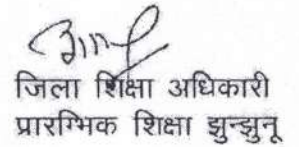 जिला शिक्षा अधिकारी
प्रारम्भिक शिक्षा झुन्झुनू